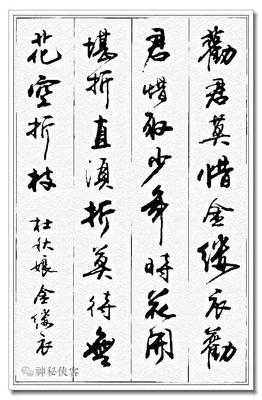 勸君莫惜金缕衣勸
君惜取少年時花開
堪折直須折莫待無
花空折枝
杜秋娘金缕衣
神秘侠客